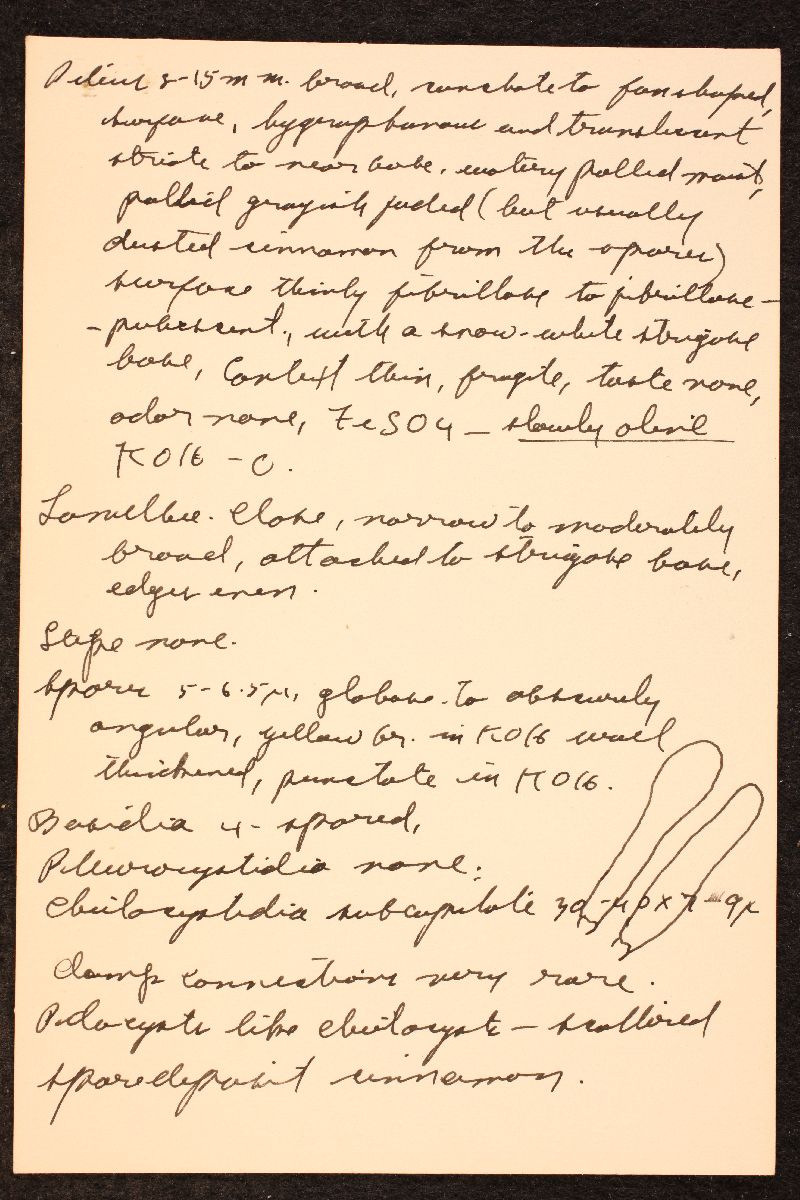 Pileus 8-15 mm. broad, conchate to fan shaped,
surface, hygrophanous and translucent
striate to near base, watery pallid moist,
pallid grayish faded (but usually
dusted cinnamon from the spores)
surface thinly fibrillose to fibrillose-
-pubescent, with a snow-white strigose
base, Context thin, fragile, taste none,
odor none, FeSO4 - slowly olive
KOH - O.
Lamellae. Close, narrow to moderately
broad, attached to strigose base,
edges even.
Stipe none.
Spores 5-6.5μ, globose to obscurely
angular, yellow br. in KOH wall
thickened, punctate in KOH.
Basidia 4-spored,
Pleurocystidia none;
Cheilocystidia subcapitate 30-40 x 7-9μ
Clamp connections very rare.
Pilocysts like cheilocysts - scattered
spore deposit cinnamon.